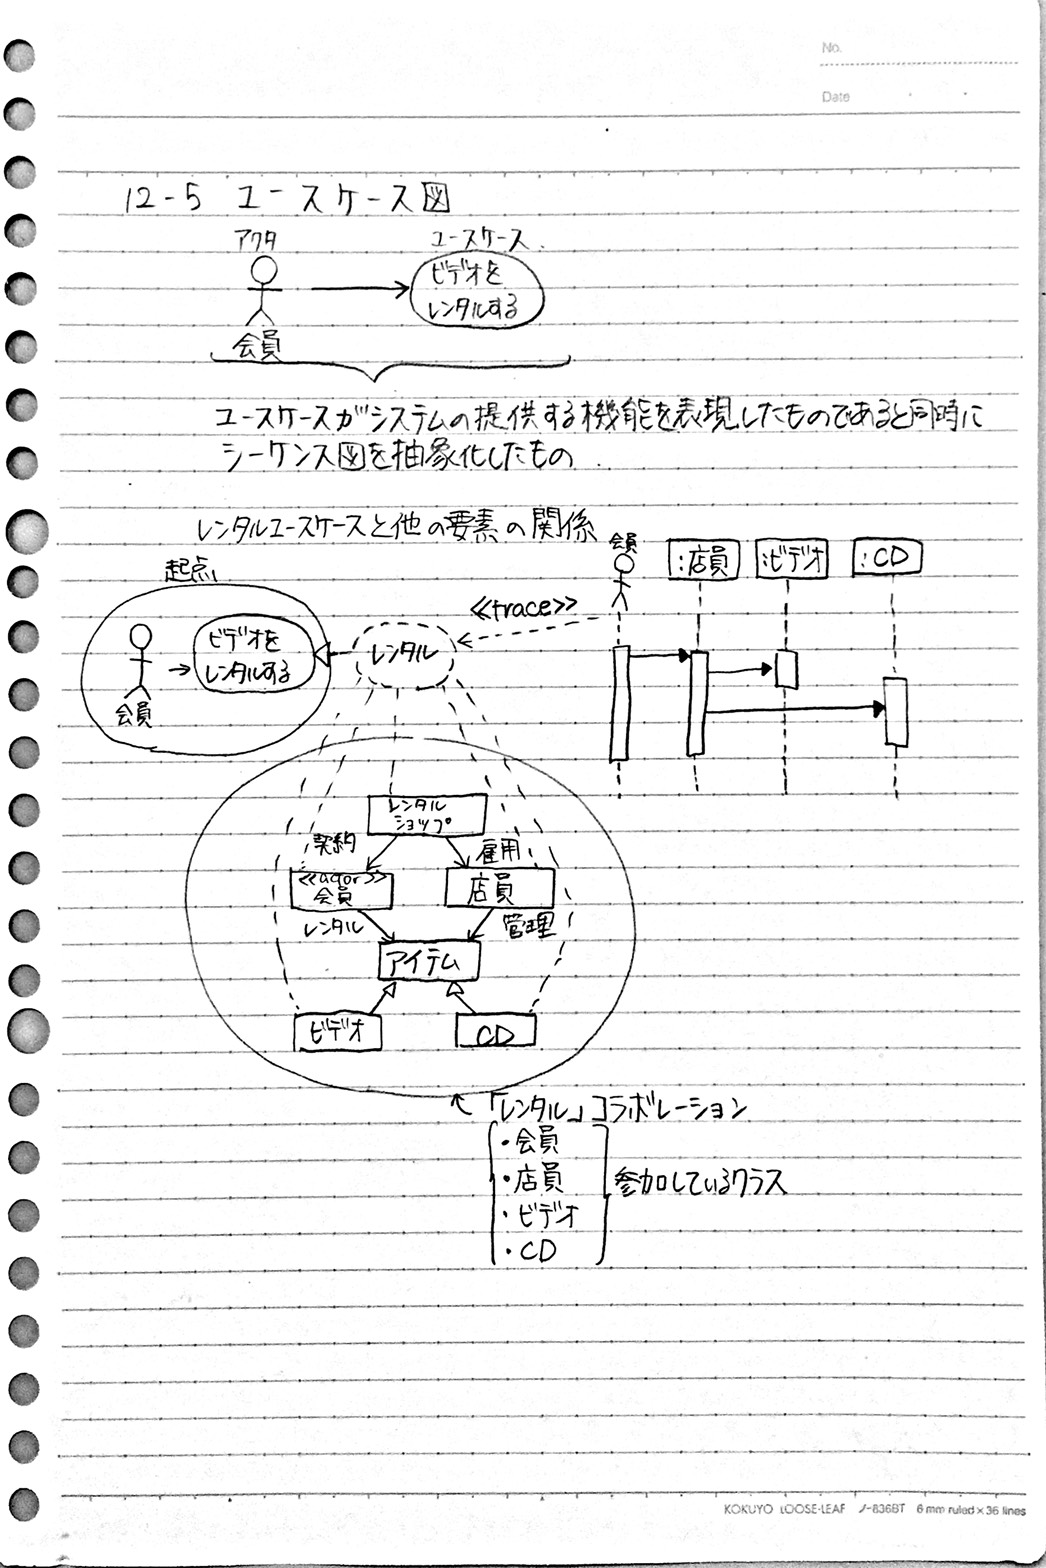 No.
Date
12-5 ユースケース図
アクタ
ユースケース
ビデオを
レンタルする
会員
ユースケースがシステムの提供する機能を表現したものであると同時に
シーケンス図を抽象化したもの
レンタルユースケースと他の要素の関係
起点
ビデオを
レンタルする
会員
レンタル
<<trace>>
会員
:店員
:ビデオ
:CD
レンタル
ショップ
契約
雇用
<<actor>>
会員
店員
レンタル
管理
アイテム
ビデオ
CD
「レンタル」コラボレーション
・会員
・店員
・ビデオ
・CD
参加しているクラス
KOKUYO LOOSE-LEAF ノ-836BT 6 mm ruled×36 lines